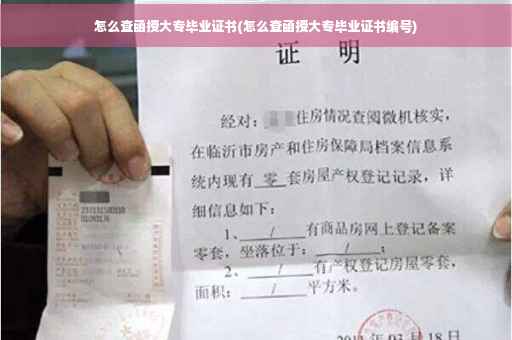 怎么查函授大专毕业证书(怎么查函授大专毕业证书编号)
证 明
经对: 住房情况查阅微机核实,
在临沂市房产和住房保障局档案信息系
统内现有 零 套房屋产权登记记录, 详
细信息如下:
1、 / 有商品房网上登记备案
零套, 坐落位于: / ;
2、 / 有产权登记房屋零套,
面积: / 平方米。
年 03 月 18 日